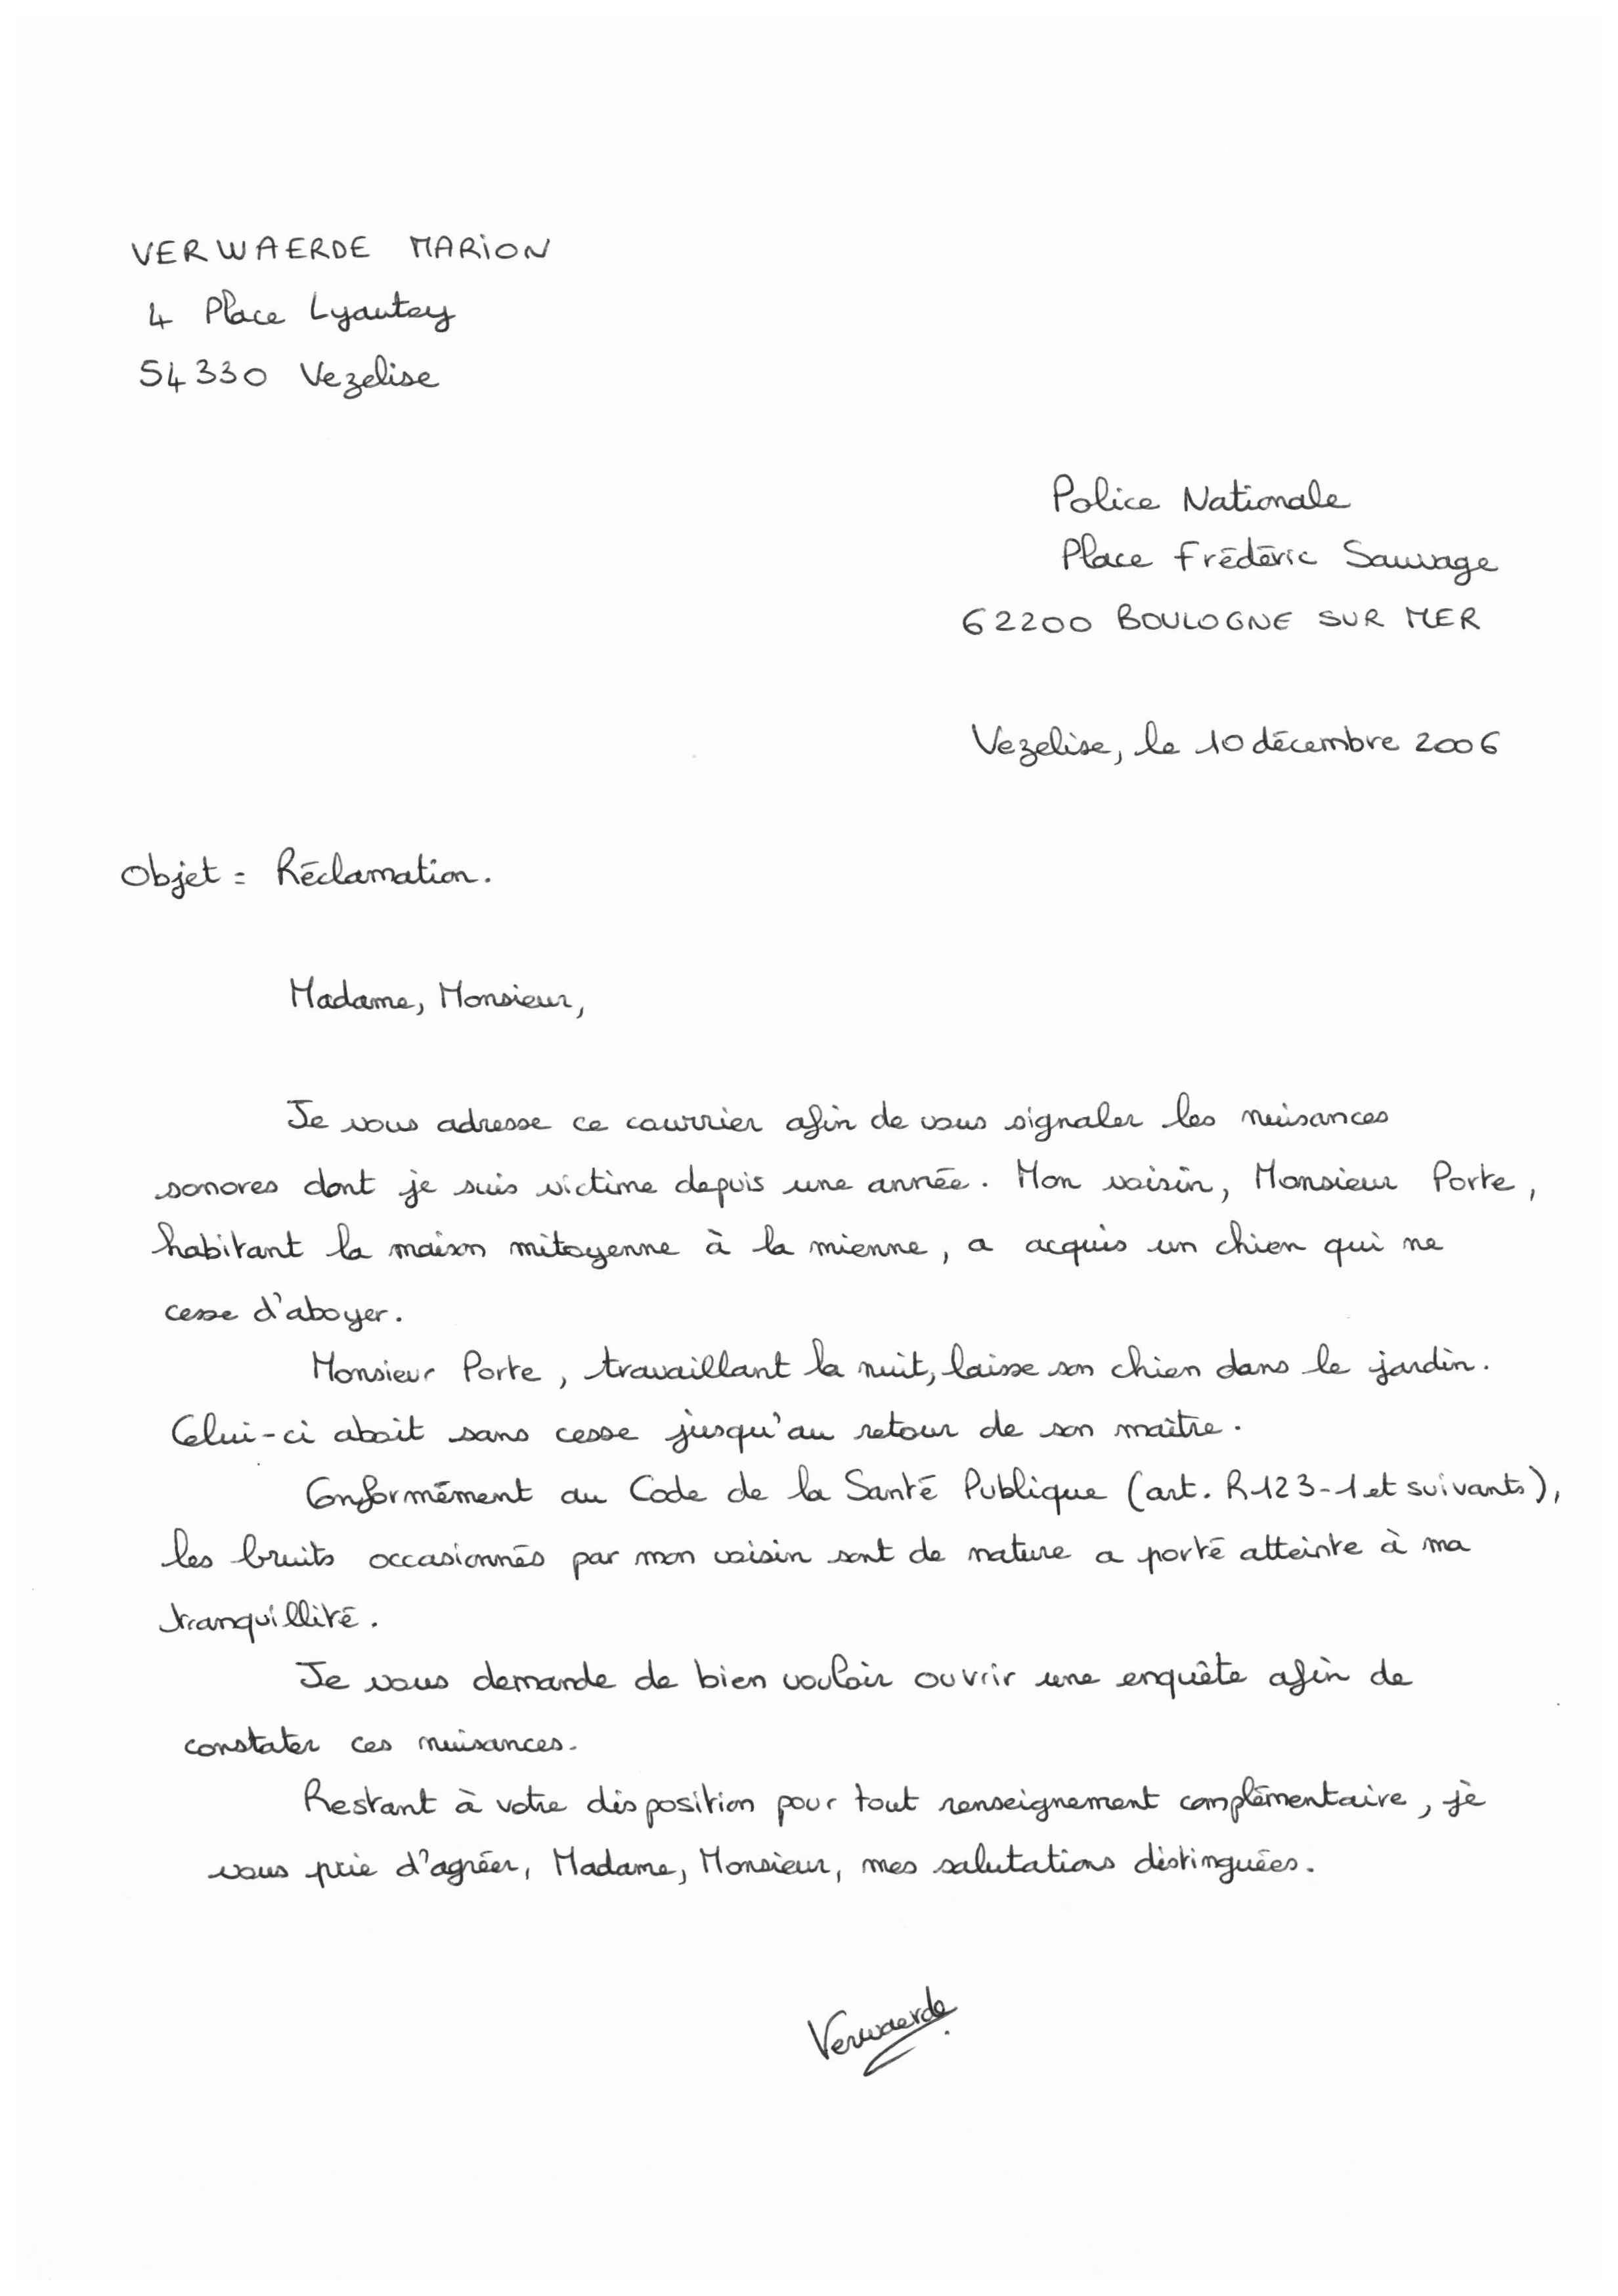 VERWAERDE MARION
4 Place Lyautey
54330 Vezelise
Police Nationale
Place Frédéric Sauvage
62200 BOULOGNE SUR MER
Vezelise, le 10 décembre 2006
Objet : Réclamation.
Madame, Monsieur,
Je vous adresse ce courrier afin de vous signaler les nuisances
sonores dont je suis victime depuis une année. Mon voisin, Monsieur Porte,
habitant la maison mitoyenne à la mienne, a acquis un chien qui ne
cesse d'aboyer.
Monsieur Porte, travaillant la nuit, laisse son chien dans le jardin.
Celui-ci aboit sans cesse jusqu'au retour de son maître.
Conformément au Code de la Santé Publique (art. R.123-1 et suivants),
les bruits occasionnés par mon voisin sont de nature a porté atteinte à ma
tranquillité.
Je vous demande de bien vouloir ouvrir une enquête afin de
constater ces nuisances.
Restant à votre disposition pour tout renseignement complémentaire, je
vous prie d'agréer, Madame, Monsieur, mes salutations distinguées.
Verwaerde